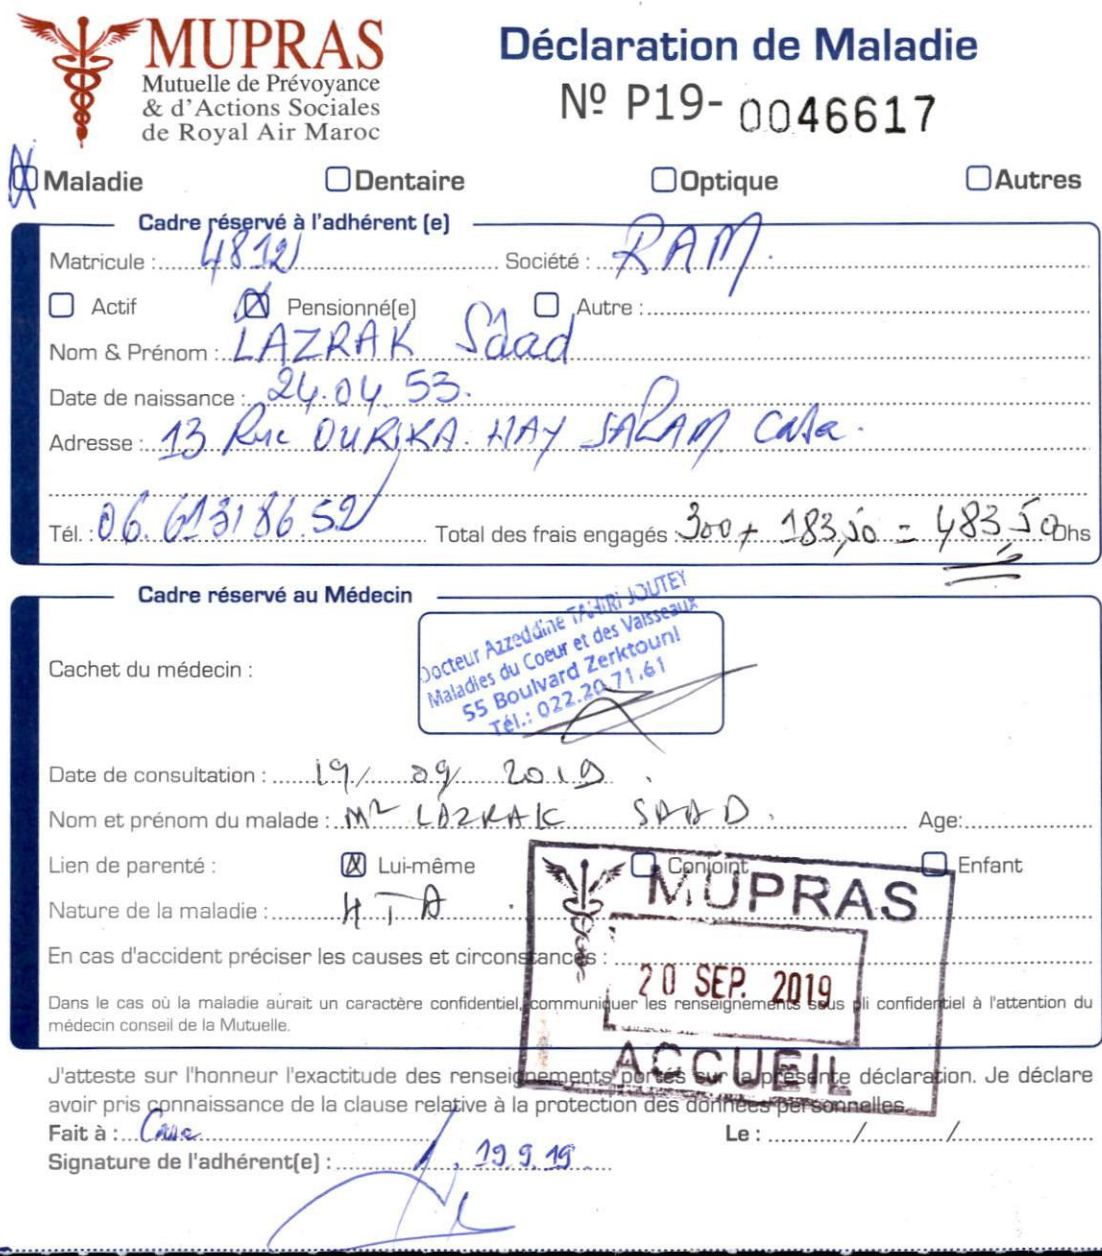 MUPRAS
Mutuelle de Prévoyance
& d'Actions Sociales
de Royal Air Maroc
Déclaration de Maladie
Nº P19- 0046617
Maladie Dentaire Optique Autres
Cadre réservé à l'adhérent (e)
Matricule : 4812 Société : RAM.
Actif Pensionné(e) Autre :
Nom & Prénom : LAZRAK Saad
Date de naissance : 24.04.53.
Adresse : 13 Rue OURIKA. HAY SALAM Casa.
Tél. : 06.61318652 Total des frais engagés : 300 + 183,50 = 483,50 Dhs
Cadre réservé au Médecin
Docteur Azzeddine TAHIRI JOUTEY
Maladies du Coeur et des Vaisseaux
55 Boulvard Zerktouni
Tél.: 022.20.71.61
Cachet du médecin :
Date de consultation : 19/ 09/ 2019.
Nom et prénom du malade : Mr LAZRAK SAAD. Age:
Lien de parenté : Lui-même Conjoint Enfant
Nature de la maladie : HTA.
En cas d'accident préciser les causes et circonstances :
Dans le cas où la maladie aurait un caractère confidentiel, communiquer les renseignements sous pli confidentiel à l'attention du
médecin conseil de la Mutuelle.
MUPRAS
20 SEP. 2019
ACCUEIL
J'atteste sur l'honneur l'exactitude des renseignements portés sur la présente déclaration. Je déclare
avoir pris connaissance de la clause relative à la protection des données personnelles.
Fait à : Casa Le : / /
Signature de l'adhérent(e) : 19.9.19.